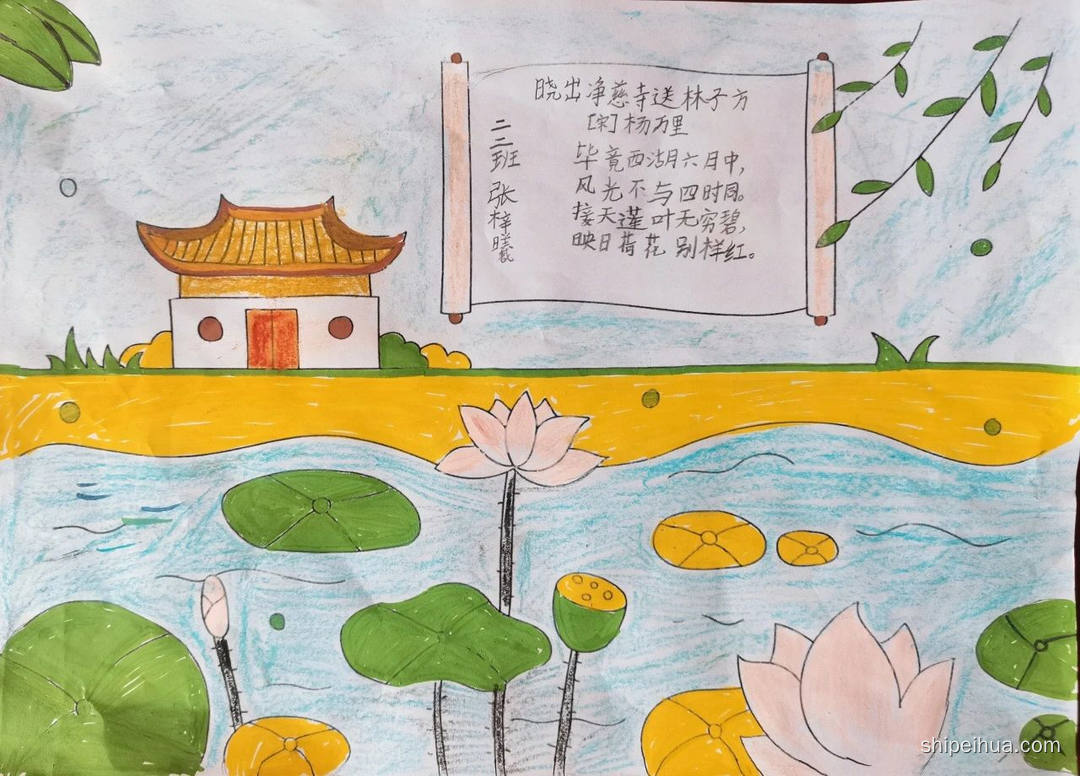 晓出净慈寺送林子方
[宋]杨万里
毕竟西湖六月中，
风光不与四时同。
接天莲叶无穷碧，
映日荷花别样红。
二二班 张梓曦
shipeihua.com